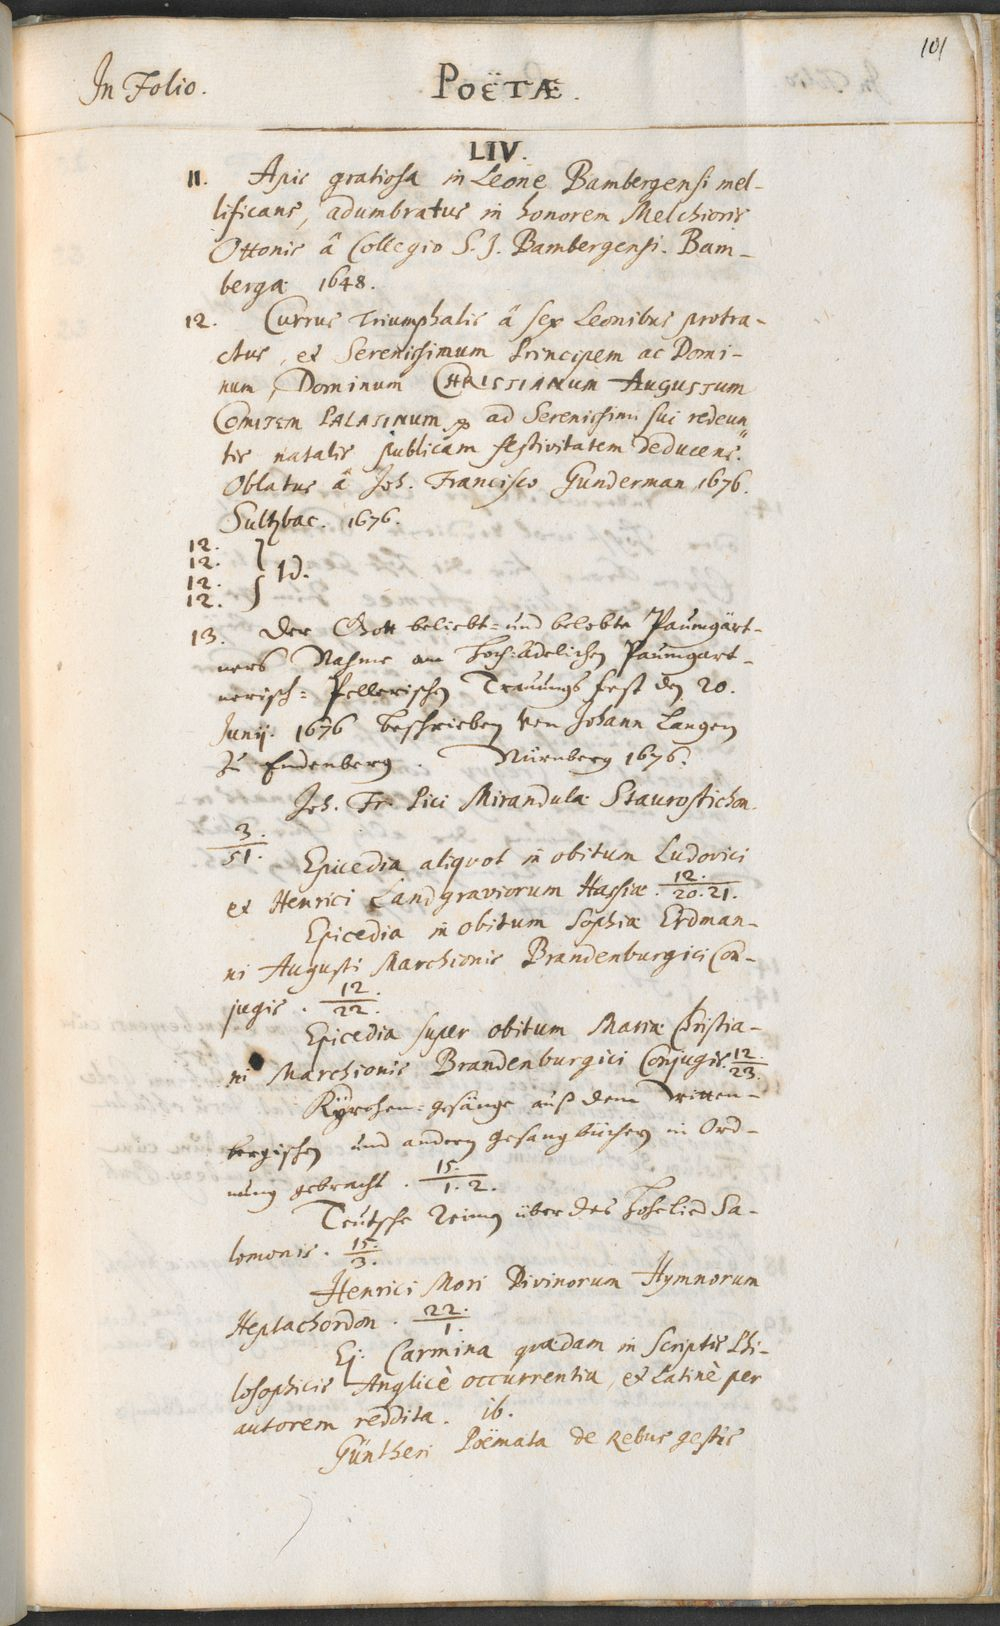 101
In Folio.
POËTÆ.
LIV.
11. Apis gratiosa in Leone Bambergensi mel-
lificans, adumbratus in honorem Melchioris
Ottonis â Collegio S. J. Bambergensi. Bam-
bergæ 1648.
12. Currus Triumphalis â sex Leonibus protra-
ctus, et Serenissimum Principem ac Domi-
num, Dominum CHRISTIANUM AUGUSTUM
COMITEM PALATINUM ad Serenissimi sui redeun
tis natalis publicam festivitatem deducens.
Oblatus â Joh. Francisco Gunderman 1676.
Sultzbac. 1676.
12.
12.
12. } Id.
12.
13. Der Gott beliebt- und belobte Paumgärt-
ners Nahme am Hoch-adelichen Paumgart-
nerisch-Pellerischen Trauungs fest den 20.
Junij. 1676 beschrieben von Johann Langen
zu Endenberg. Nürnberg 1676.
Joh. Fr. Pici Mirandulæ Staurostichon.
3./51.
Epicedia aliquot in obitum Ludovici
et Henrici Landgraviorum Hassiæ. 12./20.21.
Epicedia in obitum Sophiæ Erdman-
ni Augusti Marchionis Brandenburgici Con-
jugis. 12./22.
Epicedia super obitum Mariæ Christia-
ni Marchionis Brandenburgici Conjugis. 12./23.
Kyrchen-gesänge auß dem Witten-
bergischen und andern gesangbüchern in Ord-
nung gebracht. 15./1.2.
Teutsche Reimen über das Hohelied Sa-
lomonis. 15./3.
Henrici Mori Divinorum Hymnorum
Heptachordon. 22./1.
Ej. Carmina quædam in Scriptis Phi-
losophicis Anglicè occurrentia, et Latinè per
autorem reddita. ib.
Güntheri Poëmata de Rebus gestis